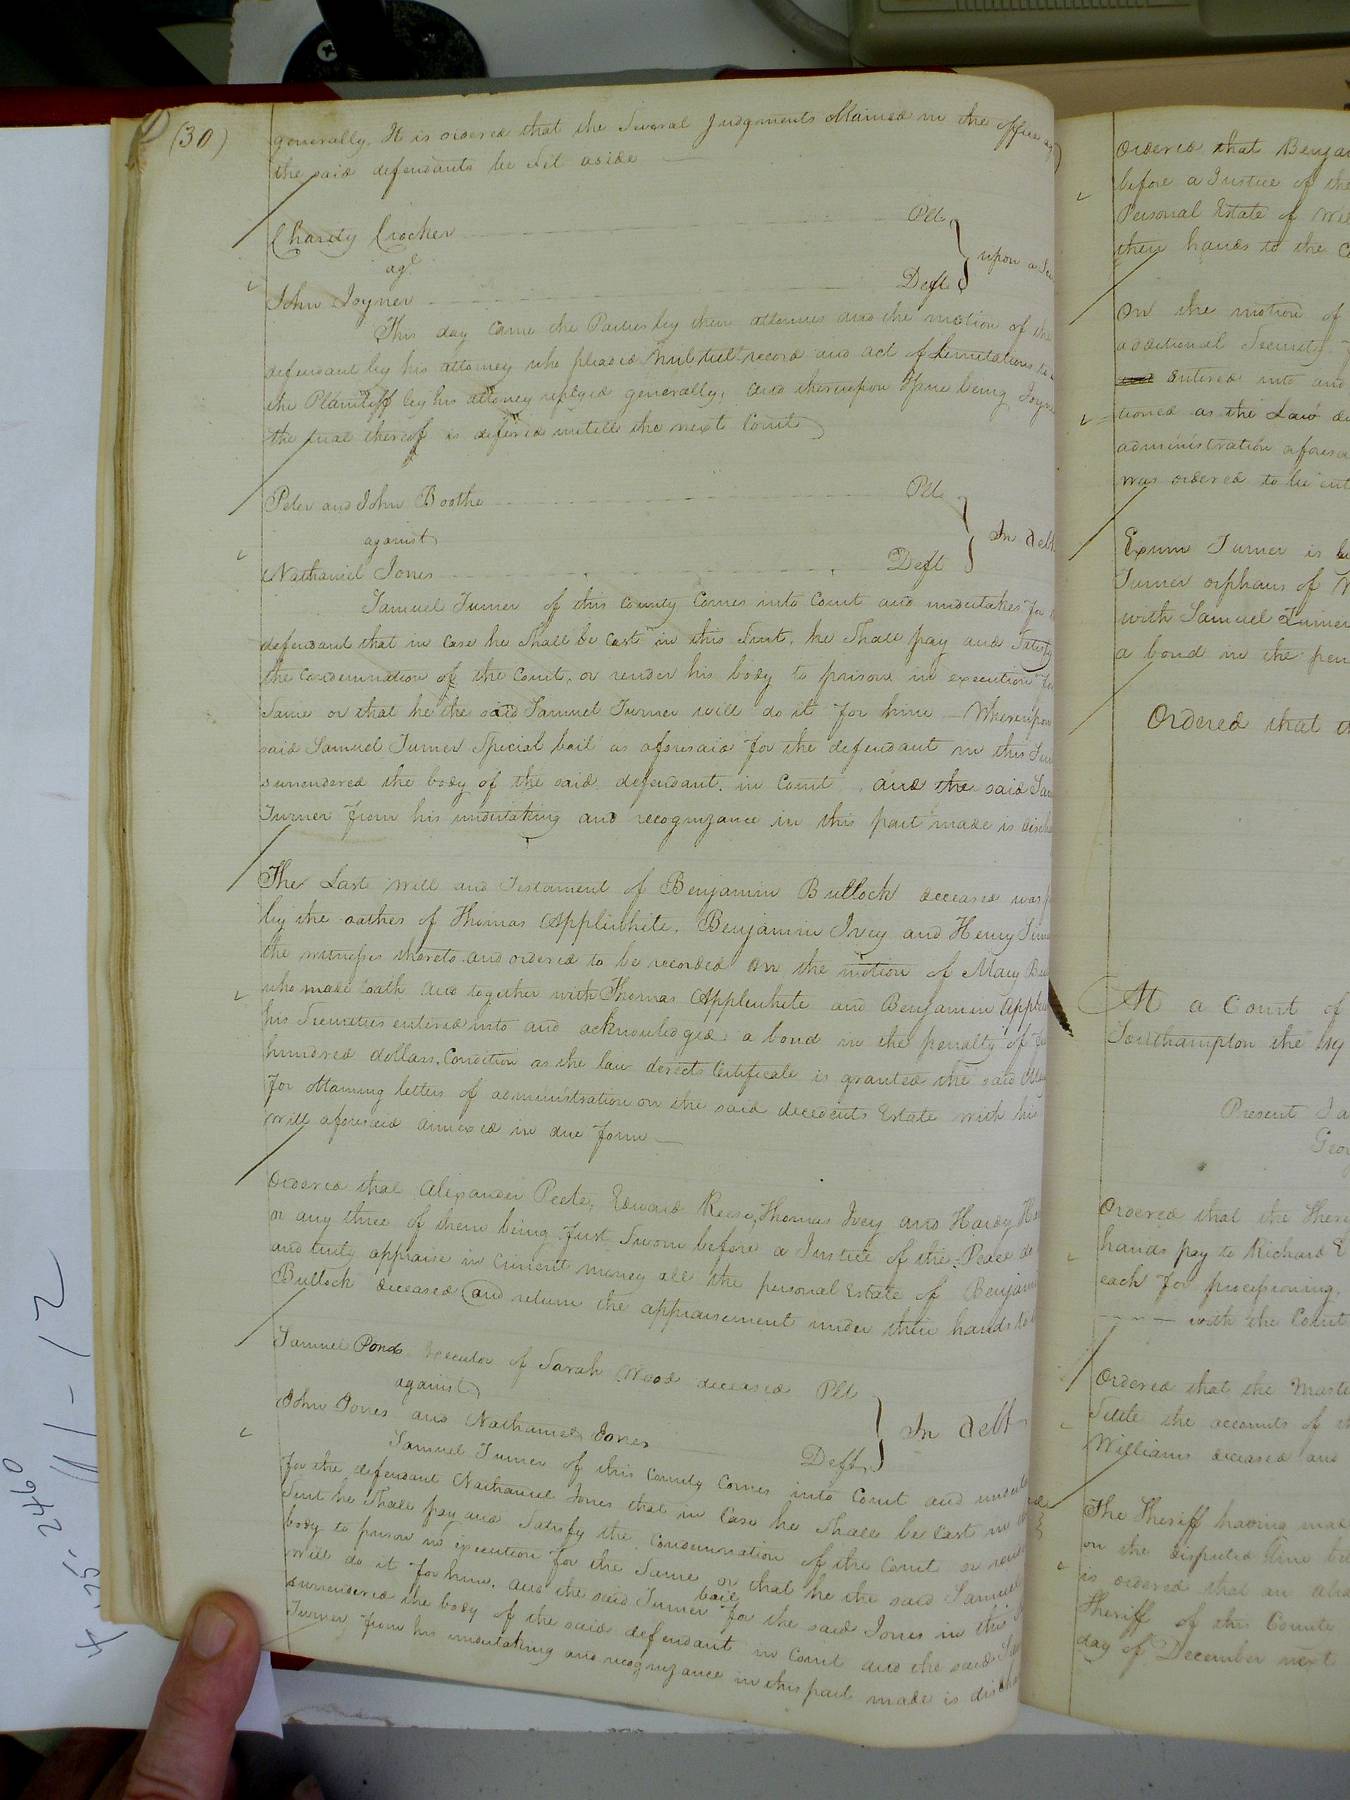 (30)
generally. It is ordered that the Several Judgments Obtained in the office ag
the said defendants be Set aside
Charity Crocker Plt
agt upon a
John Joyner Deft
This day Came the Parties by their attornies and the motion of the
defendant by his attorney who pleaded Nul tiel record and act of Limitations to
the Plaintiff by his attorney replyed generally, and thereupon Issue being Joyne
the trial thereof is defered untill the next Court
Peter and John Boothe Plt
against In debt
Nathaniel Jones Deft
Samuel Turner of this County Comes into Court and undertakes for
defendant that in Case he Shall be Cast in this Suit, he Shall pay and Satisfy
the Condemnation of the Court, or render his body to prison in execution for
Same or that he the said Samuel Turner will do it for him Whereupon
said Samuel Turner Special bail as aforesaid for the defendant in this Sui
surrendered the body of the said defendant in Court, and the said Sam
Turner from his undertaking and recognizance in this part made is discha
The Last Will and Testament of Benjamin Bullock deceased was
by the oathes of Thomas Applewhite, Benjamin Ivey and Henry
the witnesses thereto and ordered to be recorded on the motion of Mary Bu
who made oath and together with Thomas Applewhite and Benjamin Apple
his Securities entered into and acknowledged a bond in the penalty of
hundred dollars, Condition as the law directs Certificate is granted the said
for obtaining letters of administration on the said decedents Estate with his
Will aforesaid annexed in due form
Ordered that Alexander Peete, Edward Reese, Thomas Ivey and Hardy
or any three of them being first Sworn before a Justice of the Peace do
and truly appraise in Current money all the personal Estate of Benjami
Bullock deceased and return the appraisement under their hands to
Samuel Pond Executor of Sarah Wood deceased Plt
against In debt
John Jones and Nathaniel Jones Deft
Samuel Turner of this County Comes into Court and underta
for the defendant Nathaniel Jones that in Case he Shall be Cast in
Suit he Shall pay and Satisfy the Condemnation of the Court or rende
body to prison in execution for the Same or that he the said Samuel
Will do it for him, and the said Turner bail for the said Jones in this
surrendered the body of the said defendant in Court and the said Sam
Turner from his undertaking and recognizance in this part made is discha
Ordered that Benja
before a Justice of the
Personal Estate of Wil
their hands to the C
On the motion of
additional Security
entered into and
tioned as the Law d
administration aforesa
was ordered to be
Exum Turner is
Turner orphans of
with Samuel Turner
a bond in the pen
Ordered that
At a Court of
Southampton the
Present Ja
Geo
Ordered that the Sheri
hands pay to Richard
each for processioning,
with the Court
Ordered that the Maste
Settle the accounts of
Williams deceased and
The Sheriff having
on the disputed line be
is ordered that an
Sheriff of this County
day of December next
4 25- 2460
11-12